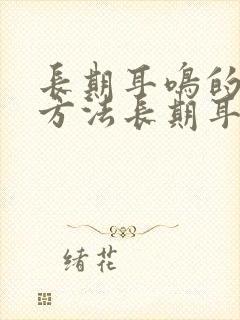 長期耳鳴的
方法長期耳
緒花